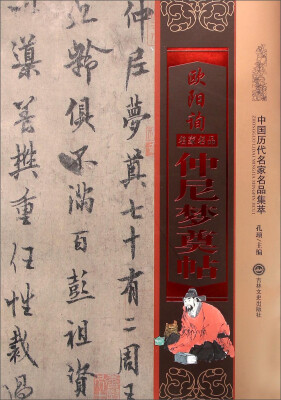 仲尼夢奠七十有二周王
九齡俱不滿百彭祖資
導養撫重任性裁過
欧阳询
名家名品
仲尼梦奠帖
中国历代名家名品集萃
孔琐/主编
吉林文史出版社